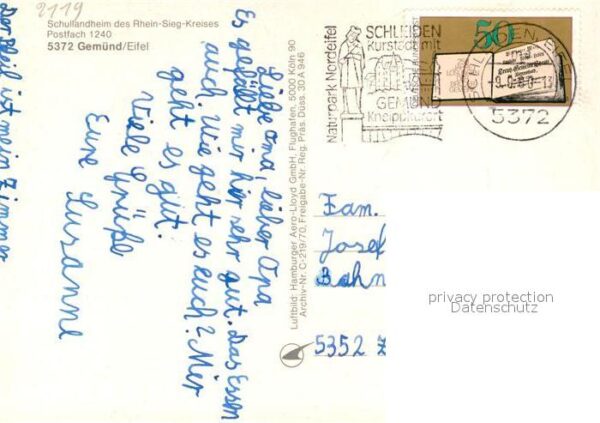 2119
Schullandheim des Rhein-Sieg-Kreises
Postfach 1240
5372 Gemünd/Eifel
Liebe Oma, lieber Opa
Es gefällt mir hier sehr gut. Das Essen
auch. Wie geht es euch? Mir
geht es gut.
Viele Grüße
Eure Susanne
Der Pfeil ist mein Zimmer
Luftbild: Hamburger Aero-Lloyd GmbH, Flughafen, 5000 Köln 90
Archiv-Nr. C-219/70, Freigabe-Nr. Reg. Präs. Düss. 30 A 946
Naturpark Nordeifel
SCHLEIDEN
Kurstadt mit
GEMÜND
Kneippkurort
50
SCHLEIDEN, EIFEL
5372
Fam.
Josef
Bahn
5352 Z
privacy protection
Datenschutz